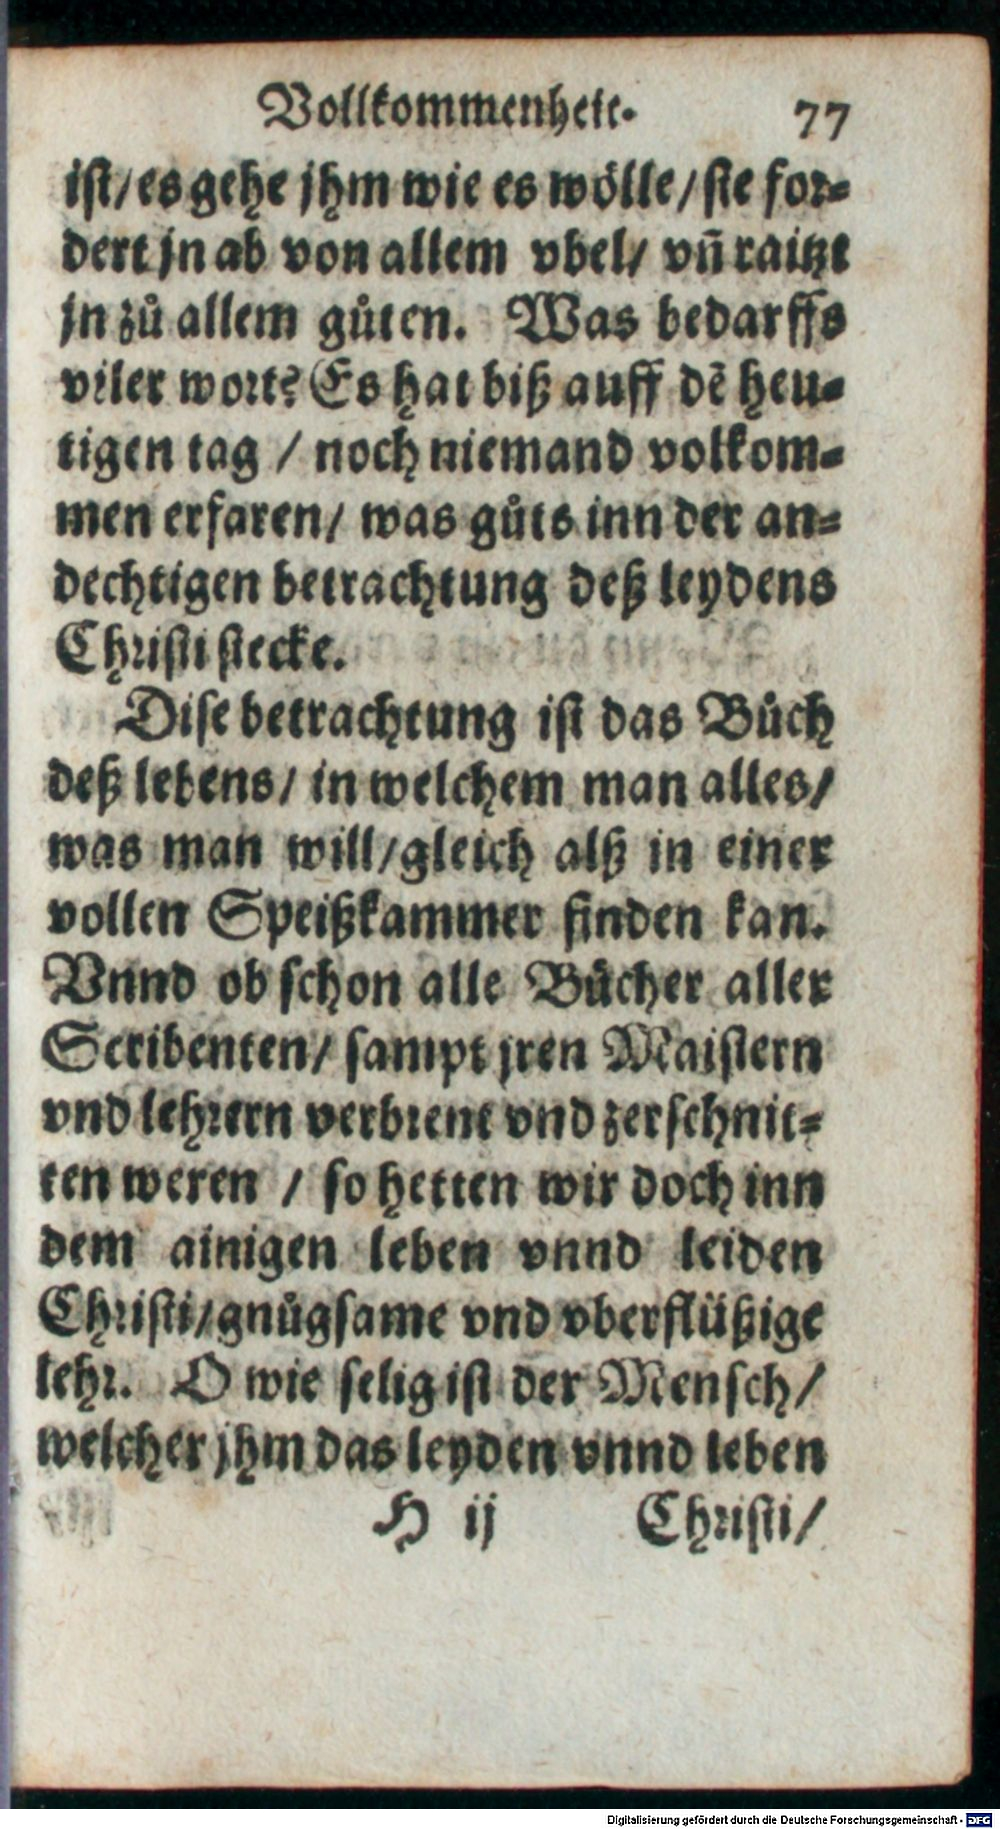 Vollkommenheit. 77
ist/ es gehe jhm wie es wölle/ sie for-
dert jn ab von allem vbel/ vn̄ raitzt
jn zů allem gůten. Was bedarffs
viler wort? Es hat biß auff dē heu-
tigen tag / noch niemand volkom-
men erfaren/ was gůts inn der an-
dechtigen betrachtung deß leydens
Christi stecke.
Dise betrachtung ist das Bůch
deß lebens/ in welchem man alles/
was man will/ gleich alß in einer
vollen Speißkammer finden kan.
Vnnd ob schon alle Bücher aller
Scribenten/ sampt jren Maistern
vnd lehrern verbrent vnd zerschnit-
ten weren / so hetten wir doch inn
dem ainigen leben vnnd leiden
Christi/ gnůgsame vnd vberflüßige
lehr. O wie selig ist der Mensch/
welcher jhm das leyden vnnd leben
H ij Christi/
Digitalisierung gefördert durch die Deutsche Forschungsgemeinschaft - DFG